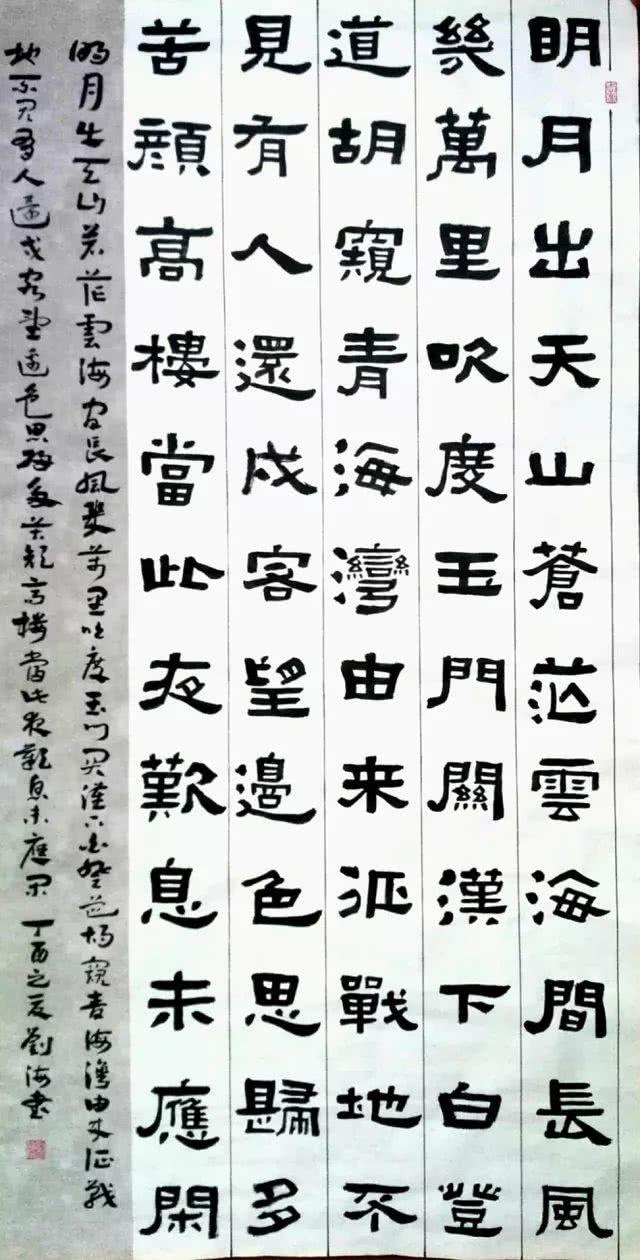 明月出天山蒼茫雲海間長風
幾萬里吹度玉門關漢下白登
道胡窺青海灣由来征戰地不
見有人還戍客望邊色思歸多
苦顔高樓當此夜歎息未應閑
明月出天山蒼茫雲海間長風幾萬里吹度玉門關漢下白登道胡窺青海灣由来征戰
地不見有人還戍客望邊色思歸多苦顔高樓當此夜歎息未應閑 丁酉之夏劉海書